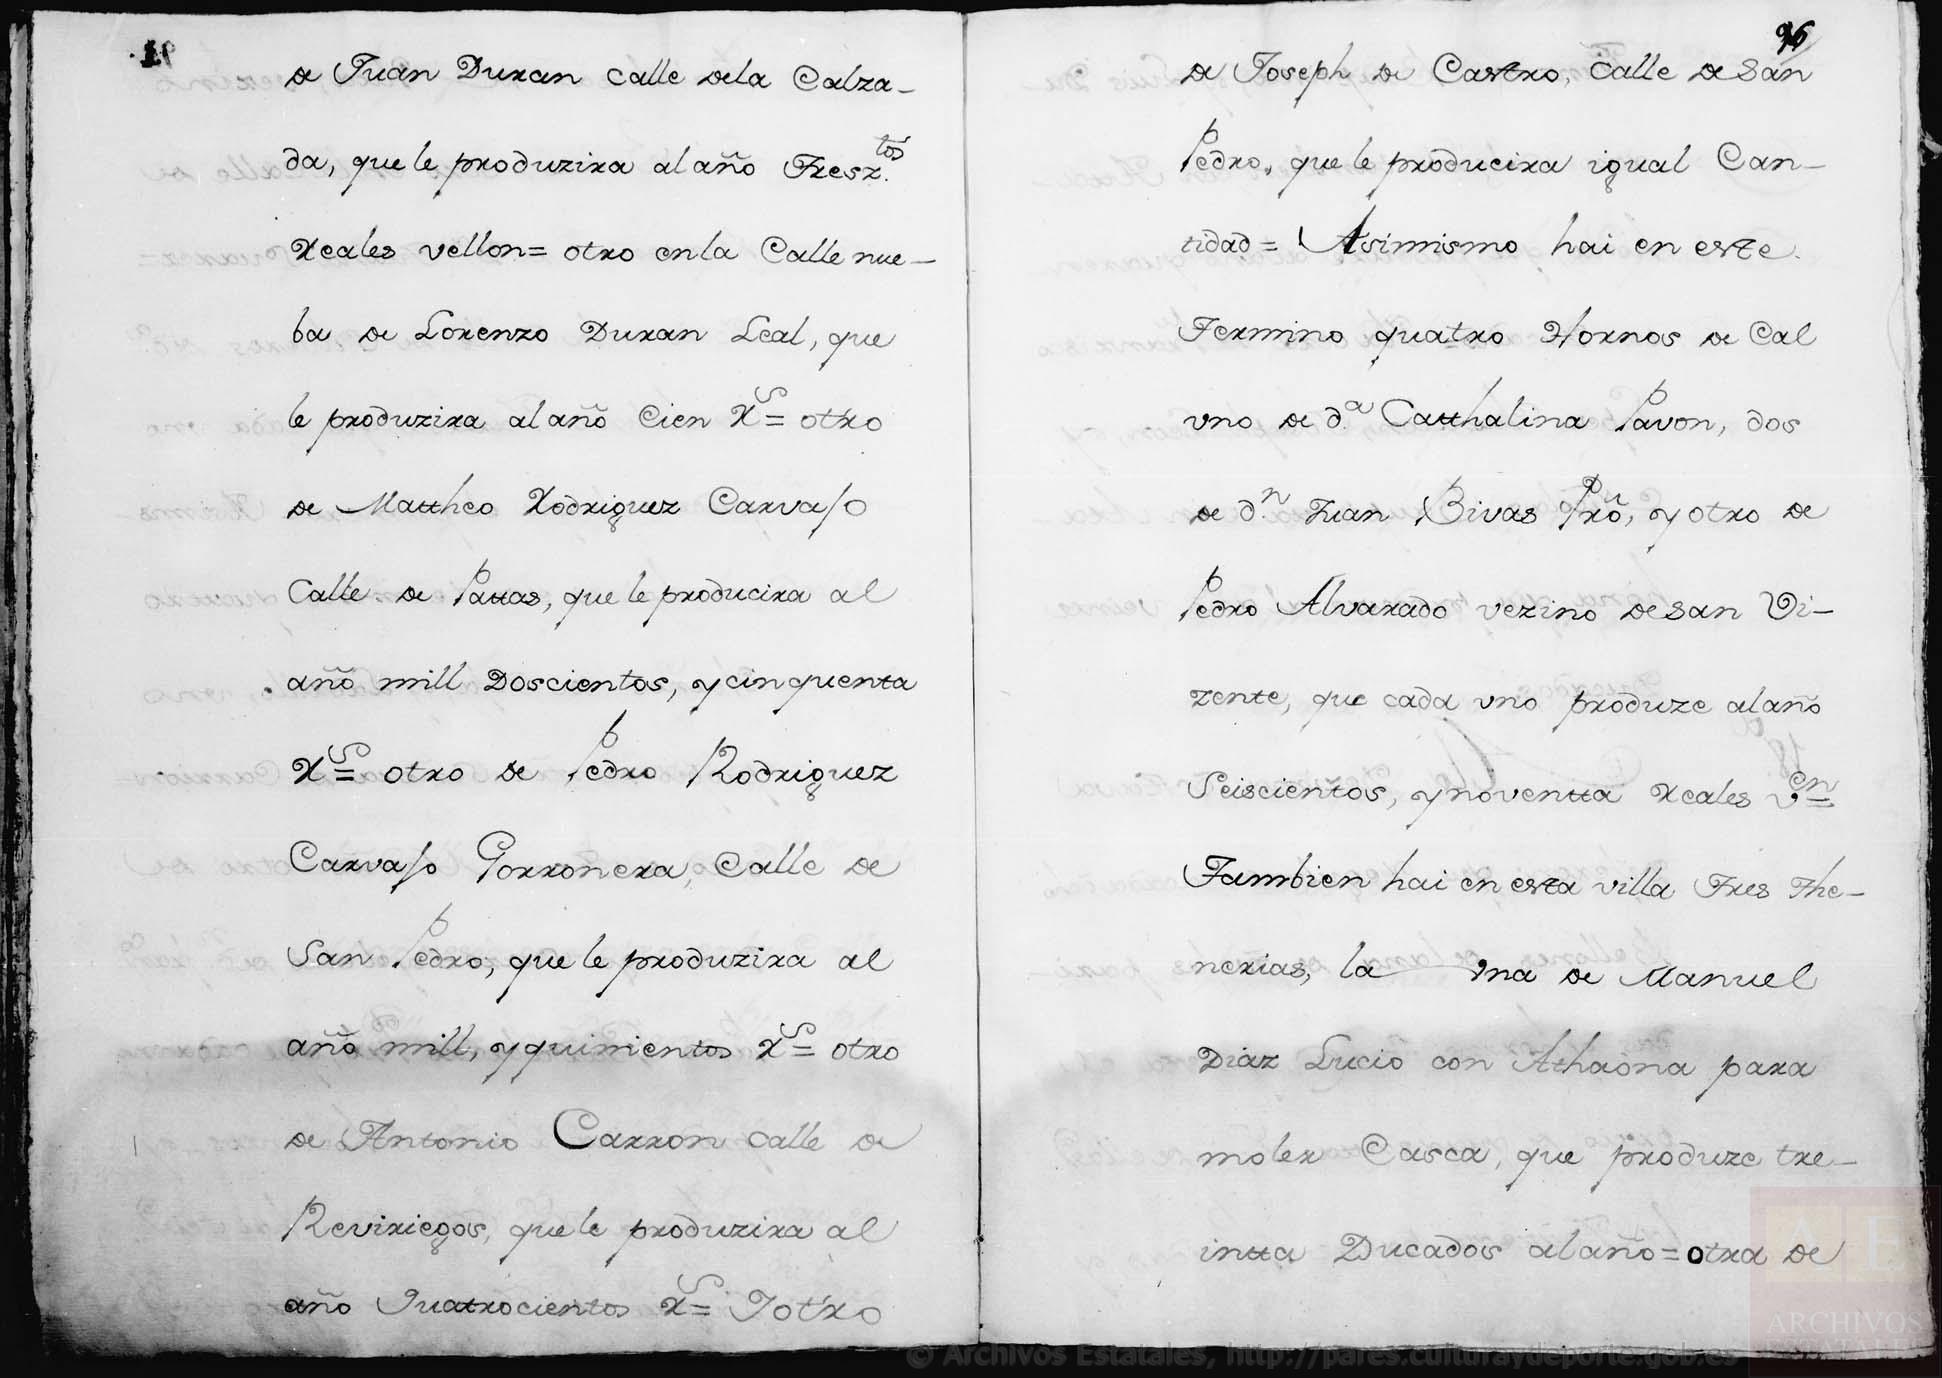 de Juan Duran calle dela Calza-
da, que le produzira al año Tresz.tos
Reales vellon= otro enla Calle nue-
ba de Lorenzo Duran Leal, que
le produzira al año Cien Rs= otro
de Mattheo Rodriguez Carvajo
Calle de Pattas, que le producira al
año mill Doscientos, y cinquenta
Rs= otro de Pedro Rodriguez
Carvajo Gorronera, Calle de
San Pedro, que le produzira al
año mill, y quinientos Rs= otro
de Antonio Carron calle de
Reviriegos, que le produzira al
año Quatrocientos Rs= Jotro
96
de Joseph de Castro, Calle de San
Pedro, que le producira igual Can-
tidad= Asimismo hai en este
Termino quatro Hornos de Cal
vno de d.a Catthalina Pavon, dos
de d.n Juan Bivas Pro, y otro de
Pedro Alvarado vezino de San Vi-
zente, que cada vno produze al año
Seiscientos, y noventta Reales Ven=
Tambien hai en esta villa Tres The-
nerias, la vna de Manuel
Diaz Lucio con Athaona para
moler Casca, que produze tre-
intta Ducados al año= otra de
ARCHIVOS
ESTATALES
© Archivos Estatales, http://pares.culturaydeporte.gob.es